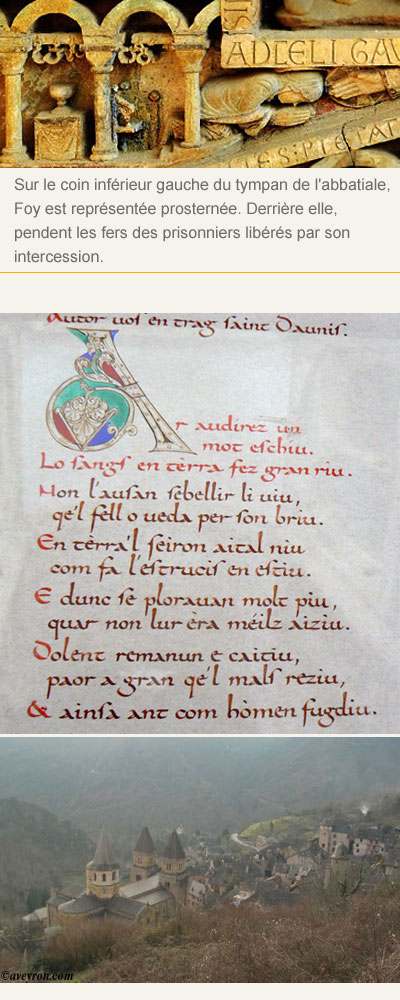 IS
ADTELLGAV
ES:PIETAT
Sur le coin inférieur gauche du tympan de l'abbatiale,
Foy est représentée prosternée. Derrière elle,
pendent les fers des prisonniers libérés par son
intercession.
Autor vos en trag saint Daunis.
Ar audirez un
mot eschiu.
Lo sangs en tèrra fez gran riu.
Non l'ausan sebellir li viu,
qe'l fell o veda per son briu.
En tèrra'l seiron aital niu
com fa l'estrucis en estiu.
E dunc se ploravan molt piu,
quar non lur èra méilz aiziu.
Dolent remanun e caitiu,
paor a gran qe'l mals reziu,
& ainsa ant com hòmen fugdiu.
©aveyron.com